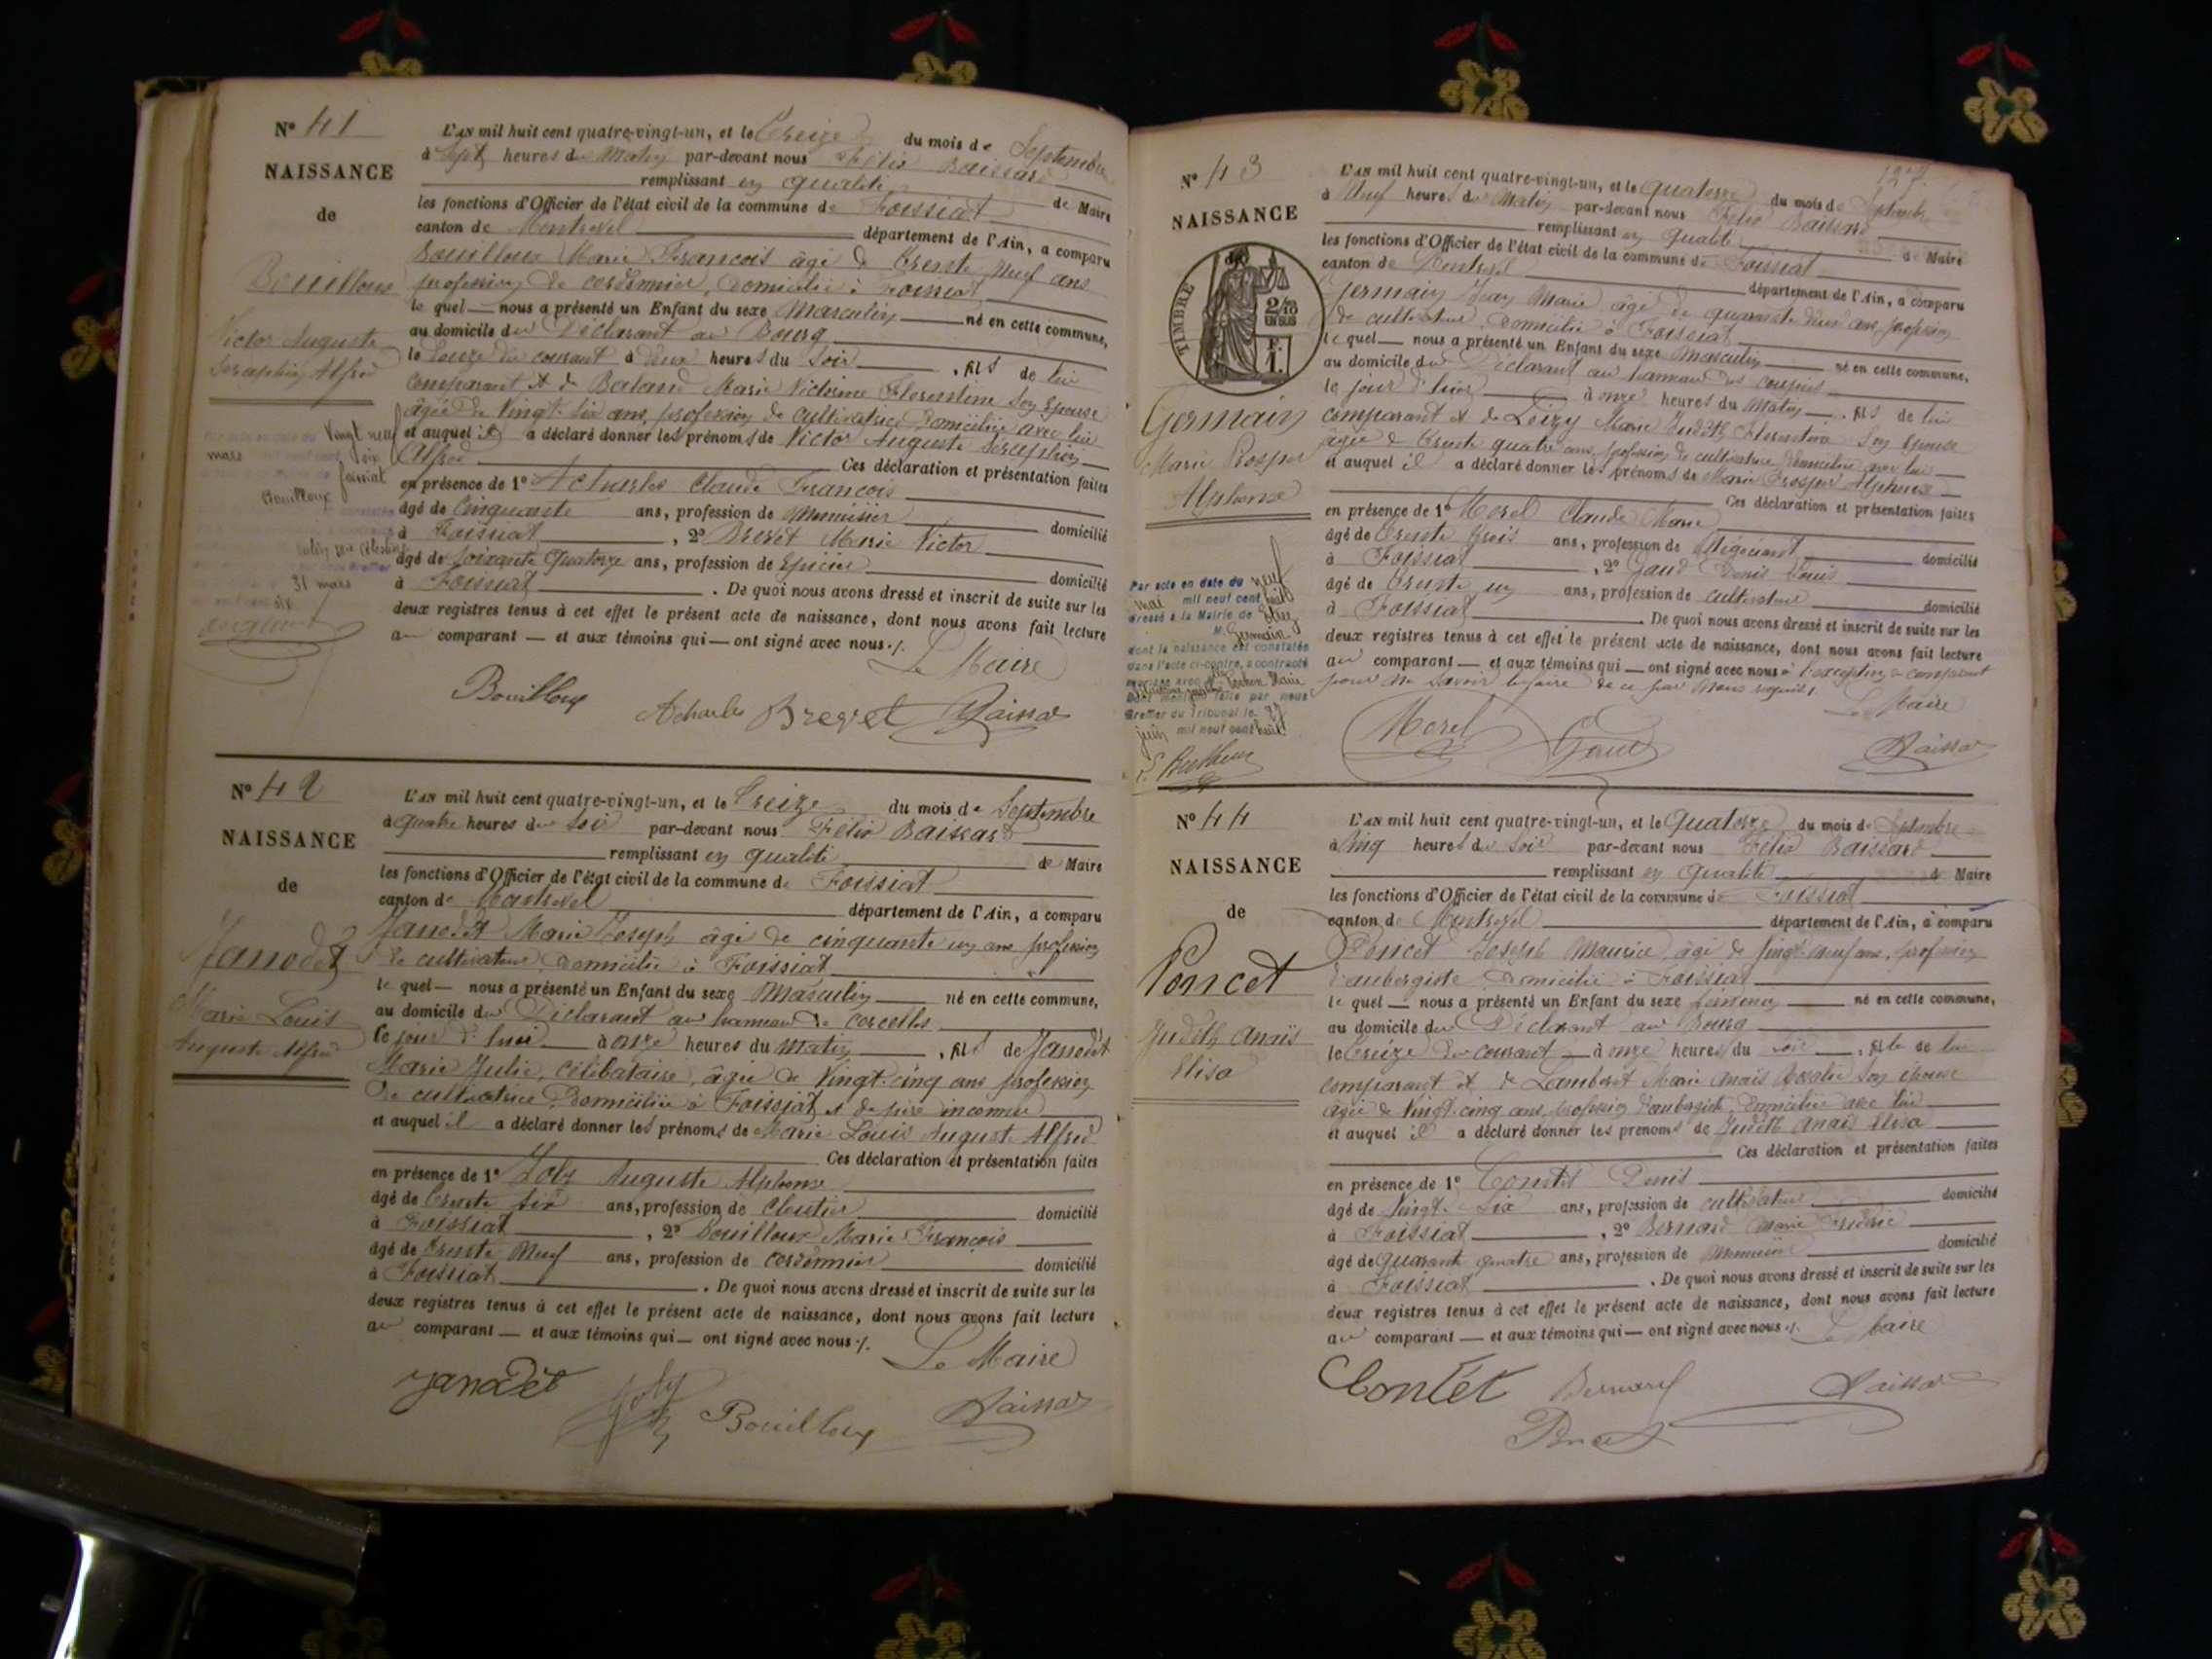 N° 41
NAISSANCE
de
Bouilloux
Victor Auguste
Séraphin Alfred
Vingt neuf
mars
six
foissiat
Bouilloux
31 mars
six
L'AN mil huit cent quatre-vingt-un, et le Treize du mois de Septembre
à Sept heures du Matin par-devant nous Félix Baissard
remplissant en qualité de Maire
les fonctions d'Officier de l'état civil de la commune de Foissiat
canton de Montrevel département de l'Ain, a comparu
Bouilloux Marie François âgé de trente neuf ans
profession de cordonnier, domicilié à Foissiat
le quel nous a présenté un Enfant du sexe Masculin né en cette commune,
au domicile du Déclarant au Bourg
le Douze du courant à deux heures du Soir, fils de lui
comparant et de Baland Marie Victorine Florentine son épouse
âgée de Vingt six ans, profession de cultivatrice domiciliée avec lui
et auquel il a déclaré donner les prénoms de Victor Auguste Séraphin
Alfred Ces déclaration et présentation faites
en présence de 1° Acharles Claude François
âgé de Cinquante ans, profession de Menuisier domicilié
à Foissiat, 2° Brevet Marie Victor
âgé de soixante quatorze ans, profession de Epicier domicilié
à Foissiat. De quoi nous avons dressé et inscrit de suite sur les
deux registres tenus à cet effet le présent acte de naissance, dont nous avons fait lecture
au comparant et aux témoins qui ont signé avec nous ./.
Le Maire
Bouilloux Acharles Brevet Baissard
N° 42
NAISSANCE
de
Janodet
Marie Louis
Auguste Alfred
L'AN mil huit cent quatre-vingt-un, et le Treize du mois de Septembre
à quatre heures du Soir par-devant nous Félix Baissard
remplissant en qualité de Maire
les fonctions d'Officier de l'état civil de la commune de Foissiat
canton de Montrevel département de l'Ain, a comparu
Janodet Marie Joseph âgé de cinquante un ans profession
de cultivateur domicilié à Foissiat
le quel nous a présenté un Enfant du sexe Masculin né en cette commune,
au domicile du Déclarant au hameau de Corcelles
le jour d'hui à onze heures du Matin, fils de Janodet
Marie Julie, célibataire, âgée de Vingt-cinq ans profession
de cultivatrice domiciliée à Foissiat et de père inconnu
et auquel il a déclaré donner les prénoms de Marie Louis Auguste Alfred
Ces déclaration et présentation faites
en présence de 1° Joly Auguste Alphonse
âgé de trente six ans, profession de Cloutier domicilié
à Foissiat, 2° Bouilloux Marie François
âgé de trente Neuf ans, profession de cordonnier domicilié
à Foissiat. De quoi nous avons dressé et inscrit de suite sur les
deux registres tenus à cet effet le présent acte de naissance, dont nous avons fait lecture
au comparant et aux témoins qui ont signé avec nous ./.
Le Maire
Janodet Joly Bouilloux Baissard
127
N° 43
NAISSANCE
de
TIMBRE
2/10
EN SUS
F.
1.
Germain
Marie Prosper
Alphonse
Par acte en date du neuf
mai mil neuf cent huit
dressé à la Mairie de
M. Germain
dont la naissance est constatée
dans l'acte ci-contre, a contracté
mariage avec
faite par nous
Greffier du Tribunal le 27
juin mil neuf cent huit
L'AN mil huit cent quatre-vingt-un, et le Quatorze du mois de Septembre
à Neuf heures du Matin par-devant nous Félix Baissard
remplissant en qualité de Maire
les fonctions d'Officier de l'état civil de la commune de Foissiat
canton de Montrevel département de l'Ain, a comparu
Germain Jean Marie âgé de quarante deux ans profession
de cultivateur domicilié à Foissiat
le quel nous a présenté un Enfant du sexe Masculin né en cette commune,
au domicile du Déclarant au hameau des
le jour d'hier à onze heures du Matin, fils de lui
comparant et de Marie Judith Florentine son épouse
âgée de trente quatre ans, profession de cultivatrice domiciliée avec lui
et auquel il a déclaré donner les prénoms de Marie Prosper Alphonse
Ces déclaration et présentation faites
en présence de 1° Morel Claude Marie
âgé de trente trois ans, profession de Négociant domicilié
à Foissiat, 2° Gaud Denis Louis
âgé de trente un ans, profession de cultivateur domicilié
à Foissiat. De quoi nous avons dressé et inscrit de suite sur les
deux registres tenus à cet effet le présent acte de naissance, dont nous avons fait lecture
au comparant et aux témoins qui ont signé avec nous à l'exception du comparant
pour ne savoir le faire de ce par nous requis.
Le Maire
Morel Gaud Baissard
N° 44
NAISSANCE
de
Poncet
Judith Anaïs
Elisa
L'AN mil huit cent quatre-vingt-un, et le Quatorze du mois de Septembre
à cinq heures du Soir par-devant nous Félix Baissard
remplissant en qualité de Maire
les fonctions d'Officier de l'état civil de la commune de Foissiat
canton de Montrevel département de l'Ain, a comparu
Poncet Joseph Maurice âgé de Vingt-neuf ans, profession
d'aubergiste domicilié à Foissiat
le quel nous a présenté un Enfant du sexe féminin né en cette commune,
au domicile du Déclarant au Bourg
le treize du courant à onze heures du soir, fille de lui
comparant et de Lamberet Marie Anaïs Rosalie son épouse
âgée de Vingt-cinq ans, profession d'aubergiste, domiciliée avec lui
et auquel il a déclaré donner les prénoms de Judith Anaïs Elisa
Ces déclaration et présentation faites
en présence de 1° Contet Denis
âgé de Vingt-Six ans, profession de cultivateur domicilié
à Foissiat, 2° Bernard Marie Frédéric
âgé de quarante quatre ans, profession de Menuisier domicilié
à Foissiat. De quoi nous avons dressé et inscrit de suite sur les
deux registres tenus à cet effet le présent acte de naissance, dont nous avons fait lecture
au comparant et aux témoins qui ont signé avec nous ./.
Le Maire
Contet Bernard Baissard
Poncet